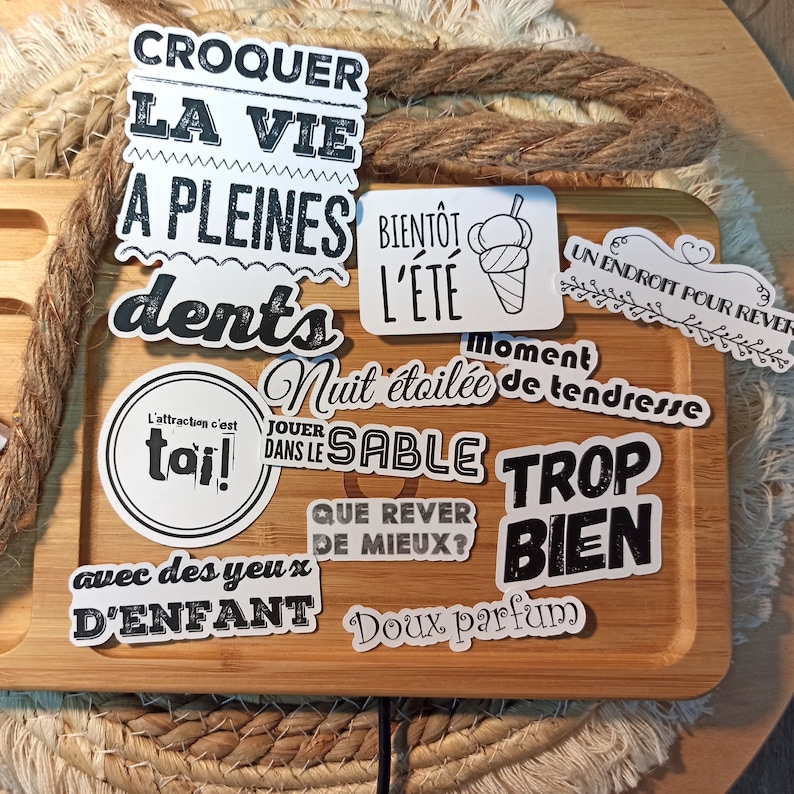 CROQUER
LA VIE
A PLEINES
dents
BIENTÔT
L'ÉTÉ
UN ENDROIT POUR REVER
Moment
de tendresse
Nuit étoilée
JOUER
DANS LE SABLE
L'attraction c'est
toi!
TROP
BIEN
QUE REVER
DE MIEUX?
avec des yeux
D'ENFANT
Doux parfum